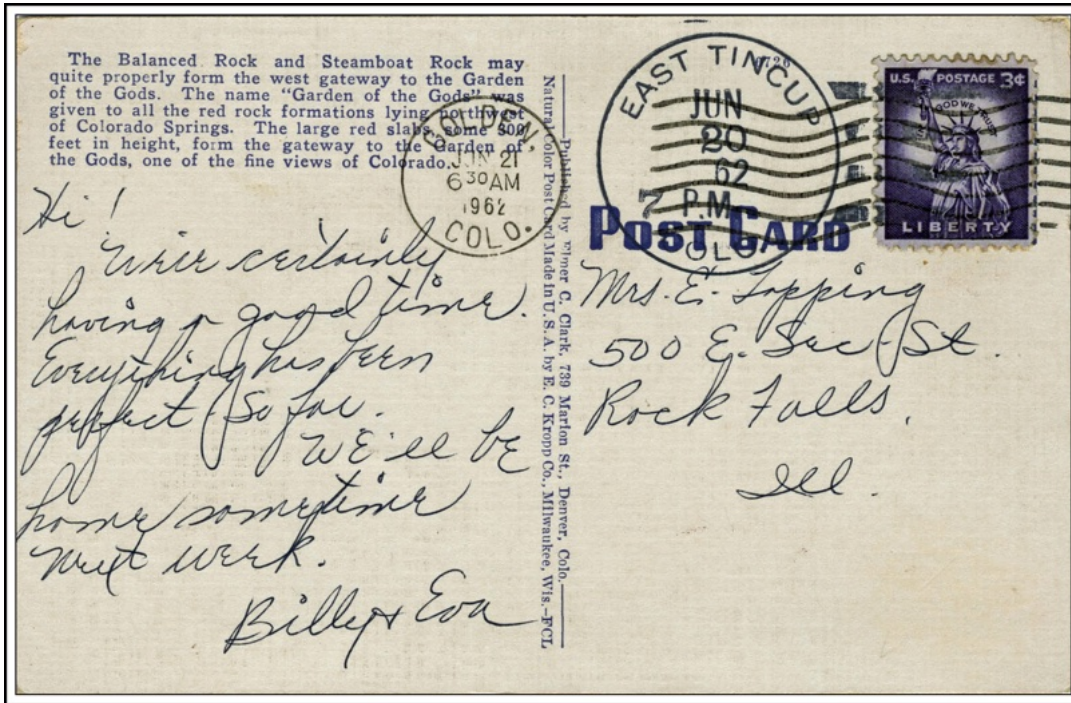 The Balanced Rock and Steamboat Rock may
quite properly form the west gateway to the Garden
of the Gods. The name "Garden of the Gods" was
given to all the red rock formations lying northwest
of Colorado Springs. The large red slabs, some 300
feet in height, form the gateway to the Garden of
the Gods, one of the fine views of Colorado.
Hi!
We're certainly
having a good time.
Everything has been
perfect so far.
We'll be
home sometime
next week.
Billy & Eva
GUNNISON,
JUN 21
6 30 AM
1962
COLO.
Published by Elmer C. Clark, 739 Marion St., Denver, Colo.
Natural Color Post Card Made in U.S.A. by E. C. Kropp Co., Milwaukee, Wis.—FCL
EAST TINCUP
JUN
20
62
7 P.M.
COLO.
POST CARD
U.S. POSTAGE 3¢
IN GOD WE TRUST
LIBERTY
Mrs. E. Topping
500 E. Sec. St.
Rock Falls,
Ill.